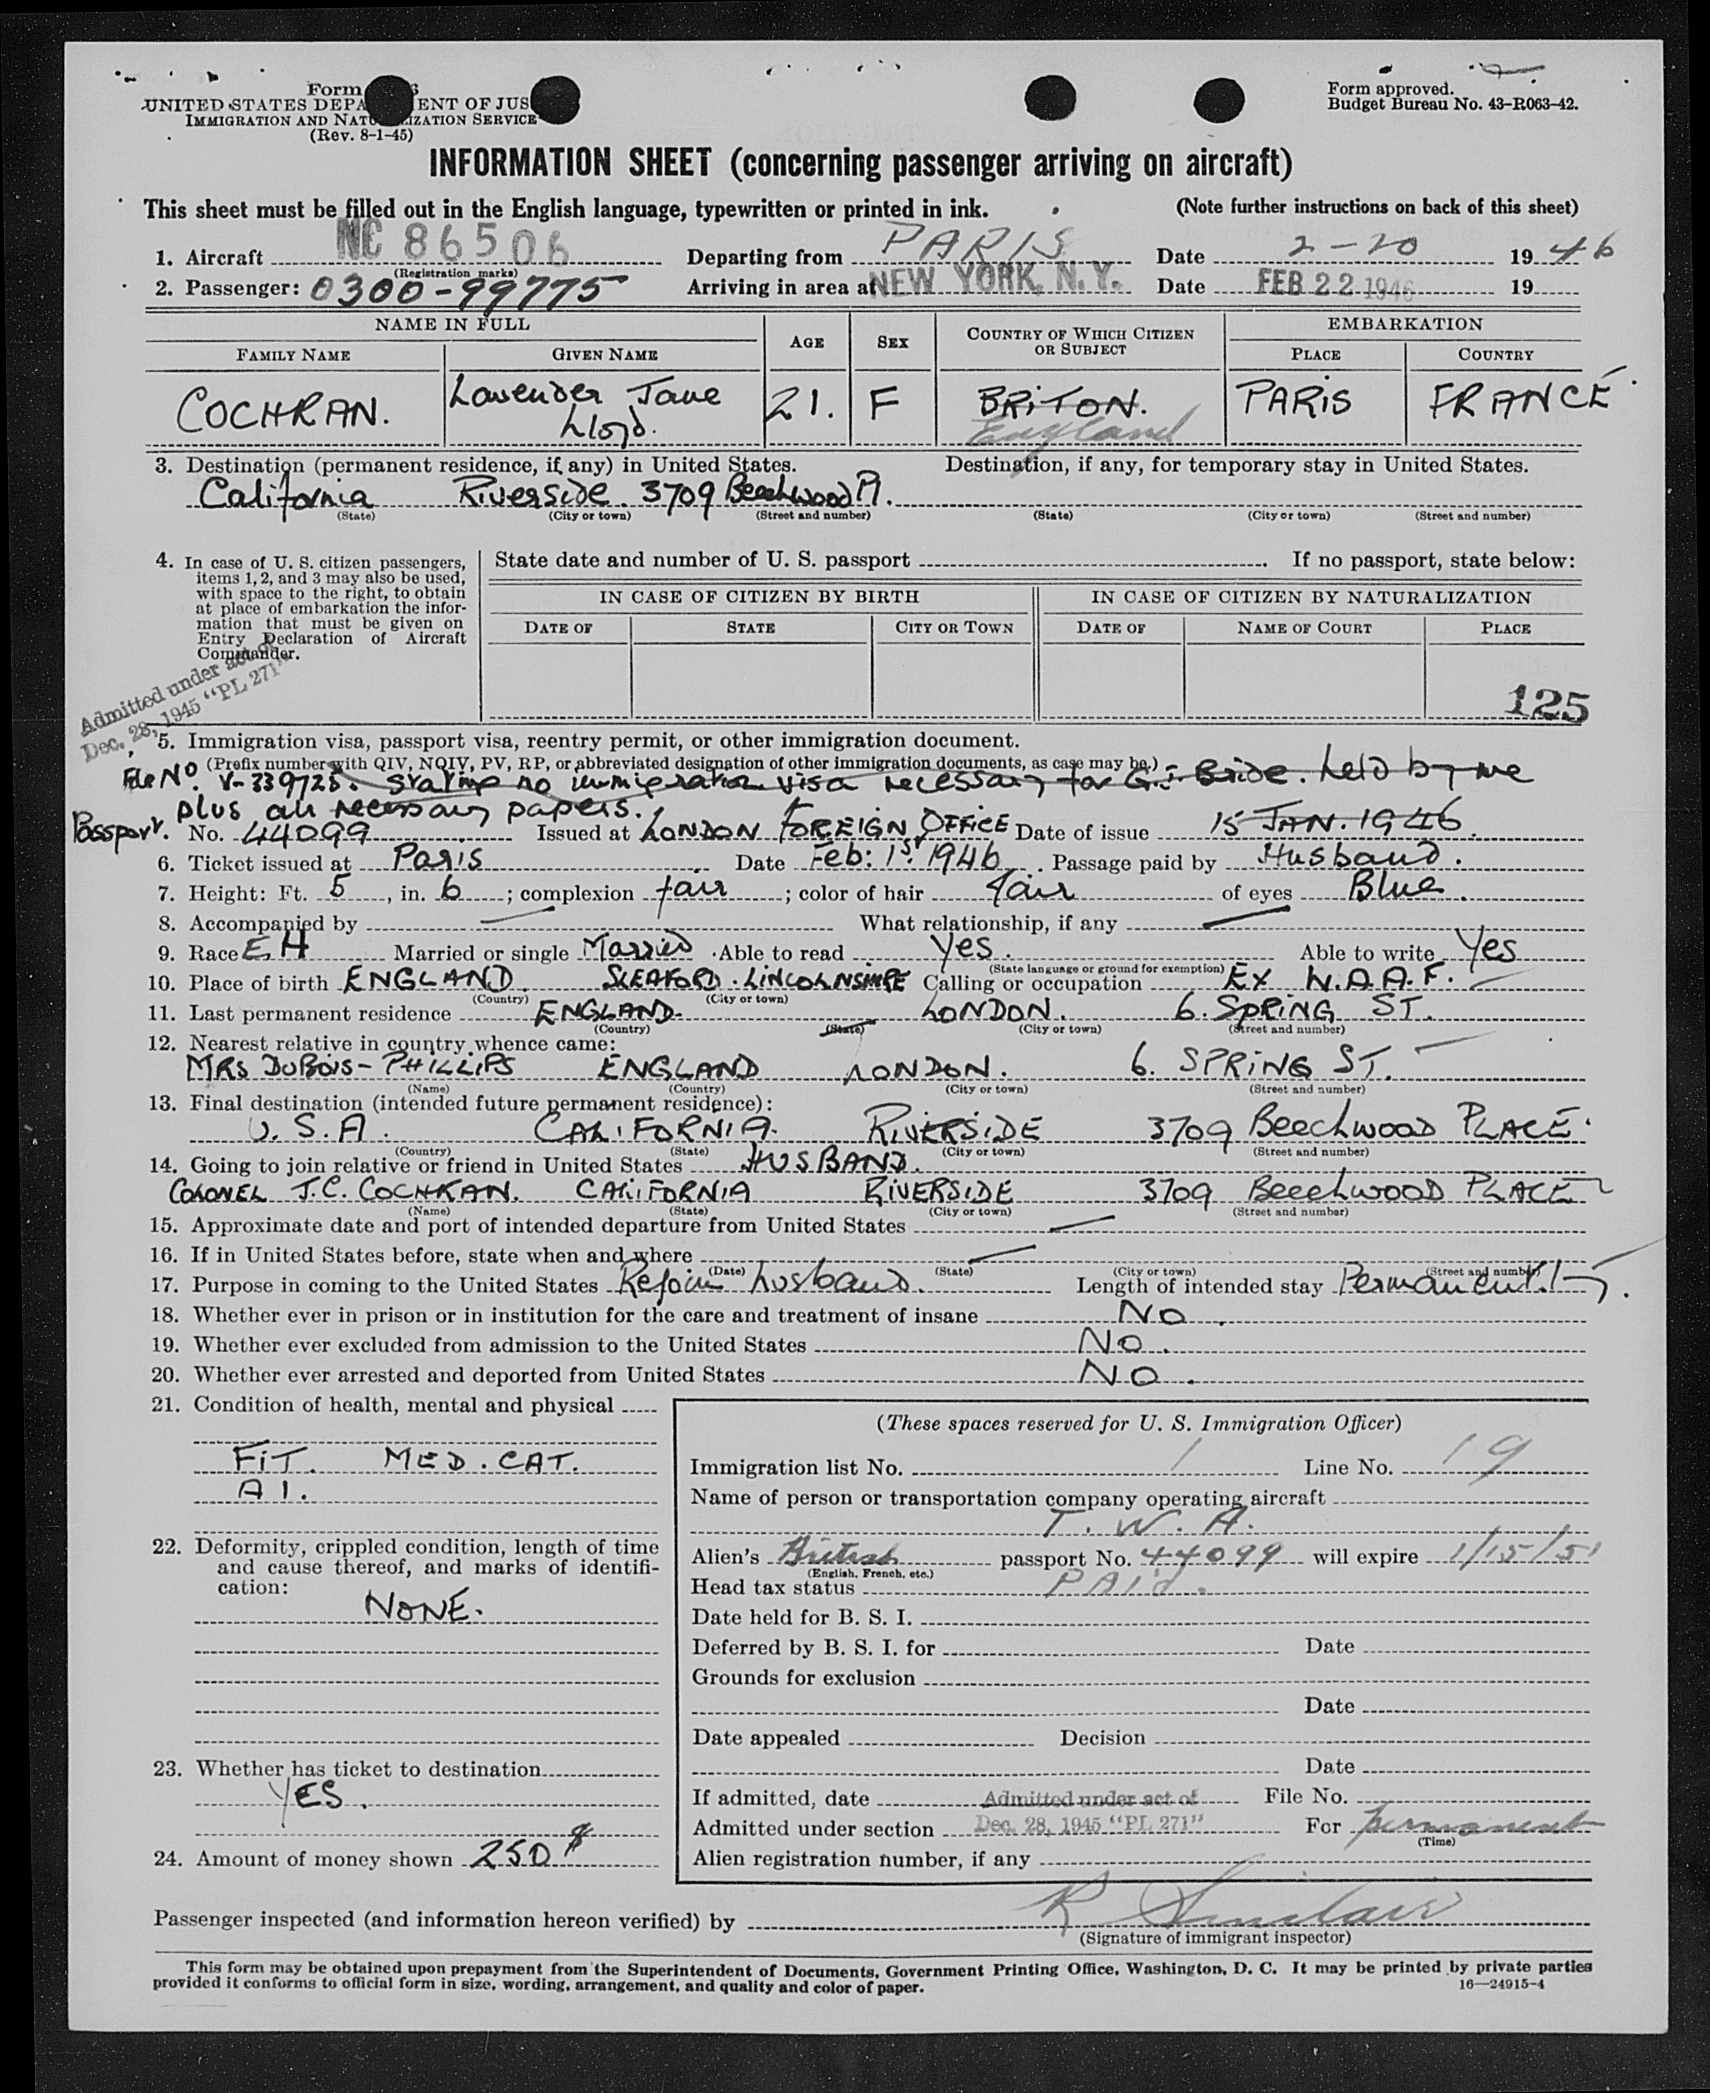 Form
UNITED STATES DEPA ENT OF JUS
IMMIGRATION AND NATU IZATION SERVICE
(Rev. 8-1-45)
Form approved.
Budget Bureau No. 43-R063-42.
INFORMATION SHEET (concerning passenger arriving on aircraft)
This sheet must be filled out in the English language, typewritten or printed in ink. (Note further instructions on back of this sheet)
1. Aircraft NC 86506 Departing from PARIS Date 2-20 1946
(Registration marks)
2. Passenger: 0300-99775 Arriving in area at NEW YORK, N.Y. Date FEB 22 1946 19
NAME IN FULL AGE SEX COUNTRY OF WHICH CITIZEN OR SUBJECT EMBARKATION
FAMILY NAME GIVEN NAME PLACE COUNTRY
COCHRAN. Lavender Jane Lloyd. 21. F BRITON. England PARIS FRANCE
3. Destination (permanent residence, if any) in United States. Destination, if any, for temporary stay in United States.
California Riverside. 3709 Beechwood Pl.
(State) (City or town) (Street and number) (State) (City or town) (Street and number)
4. In case of U. S. citizen passengers, items 1, 2, and 3 may also be used, with space to the right, to obtain at place of embarkation the information that must be given on Entry Declaration of Aircraft Commander.
State date and number of U. S. passport . If no passport, state below:
IN CASE OF CITIZEN BY BIRTH IN CASE OF CITIZEN BY NATURALIZATION
DATE OF STATE CITY OR TOWN DATE OF NAME OF COURT PLACE
125
Admitted under act of
Dec. 28, 1945 "PL 271"
5. Immigration visa, passport visa, reentry permit, or other immigration document.
(Prefix number with QIV, NQIV, PV, RP, or abbreviated designation of other immigration documents, as case may be.)
File No. V-339725. stating no immigration visa necessary for G.I. Bride. held by me
plus all necessary papers.
Passport. No. 44099 Issued at LONDON FOREIGN OFFICE Date of issue 15 JAN. 1946.
6. Ticket issued at Paris Date Feb: 1st. 1946 Passage paid by Husband.
7. Height: Ft. 5, in. 6; complexion fair; color of hair fair of eyes Blue.
8. Accompanied by — What relationship, if any —
9. Race E H Married or single Married. Able to read Yes. Able to write Yes
(State language or ground for exemption)
10. Place of birth ENGLAND. SLEAFORD. LINCOLNSHIRE Calling or occupation EX W.A.A.F.
(Country) (City or town)
11. Last permanent residence ENGLAND. LONDON. 6. SPRING ST.
(Country) (State) (City or town) (Street and number)
12. Nearest relative in country whence came:
MRS DUBOIS-PHILLIPS ENGLAND LONDON. 6. SPRING ST.
(Name) (Country) (City or town) (Street and number)
13. Final destination (intended future permanent residence):
U.S.A. CALIFORNIA. RIVERSIDE 3709 Beechwood PLACE.
(Country) (State) (City or town) (Street and number)
14. Going to join relative or friend in United States HUSBAND.
COLONEL J.C. COCHRAN. CALIFORNIA RIVERSIDE 3709 Beechwood PLACE
(Name) (State) (City or town) (Street and number)
15. Approximate date and port of intended departure from United States —
16. If in United States before, state when and where —
(Date) (State) (City or town) (Street and number)
17. Purpose in coming to the United States Rejoin husband. Length of intended stay Permanently.
18. Whether ever in prison or in institution for the care and treatment of insane NO.
19. Whether ever excluded from admission to the United States NO.
20. Whether ever arrested and deported from United States NO.
21. Condition of health, mental and physical
FIT. MED. CAT.
A 1.
22. Deformity, crippled condition, length of time and cause thereof, and marks of identification:
NONE.
23. Whether has ticket to destination
YES.
24. Amount of money shown 250 $
(These spaces reserved for U. S. Immigration Officer)
Immigration list No. 1 Line No. 19
Name of person or transportation company operating aircraft
T. W. A.
Alien's British passport No. 44099 will expire 1/15/51
(English, French, etc.)
Head tax status PAID.
Date held for B. S. I.
Deferred by B. S. I. for Date
Grounds for exclusion
Date
Date appealed Decision
Date
If admitted, date Admitted under act of File No.
Admitted under section Dec. 28, 1945 "PL 271" For permanent
(Time)
Alien registration number, if any
Passenger inspected (and information hereon verified) by R Sinclair
(Signature of immigrant inspector)
This form may be obtained upon prepayment from the Superintendent of Documents, Government Printing Office, Washington, D. C. It may be printed by private parties
provided it conforms to official form in size, wording, arrangement, and quality and color of paper. 16—24915-4